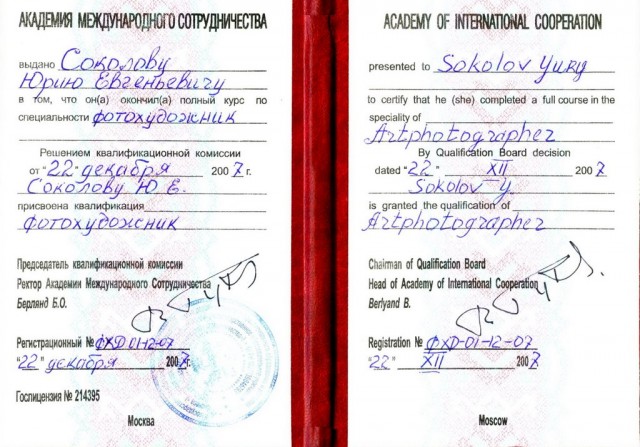 АКАДЕМИЯ МЕЖДУНАРОДНОГО СОТРУДНИЧЕСТВА
выдано Соколову
Юрию Евгеньевичу
в том, что он(а) окончил(а) полный курс по
специальности фотохудожник
Решением квалификационной комиссии
от "22" декабря 2007 г.
Соколову Ю. Е.
присвоена квалификация
фотохудожник
Председатель квалификационной комиссии
Ректор Академии Международного Сотрудничества
Берлянд Б.О.
Регистрационный № ФХД-01-12-07
"22" декабря 2007г.
Гослицензия № 214395
Москва
ACADEMY OF INTERNATIONAL COOPERATION
presented to Sokolov Yury
to certify that he (she) completed a full course in the
speciality of
Artphotographer
By Qualification Board decision
dated "22" XII 2007
Sokolov Y.
is granted the qualification of
Artphotographer
Chairman of Qualification Board
Head of Academy of International Cooperation
Berlyand B.
Registration № ФХД-01-12-07
"22" XII 2007
Moscow